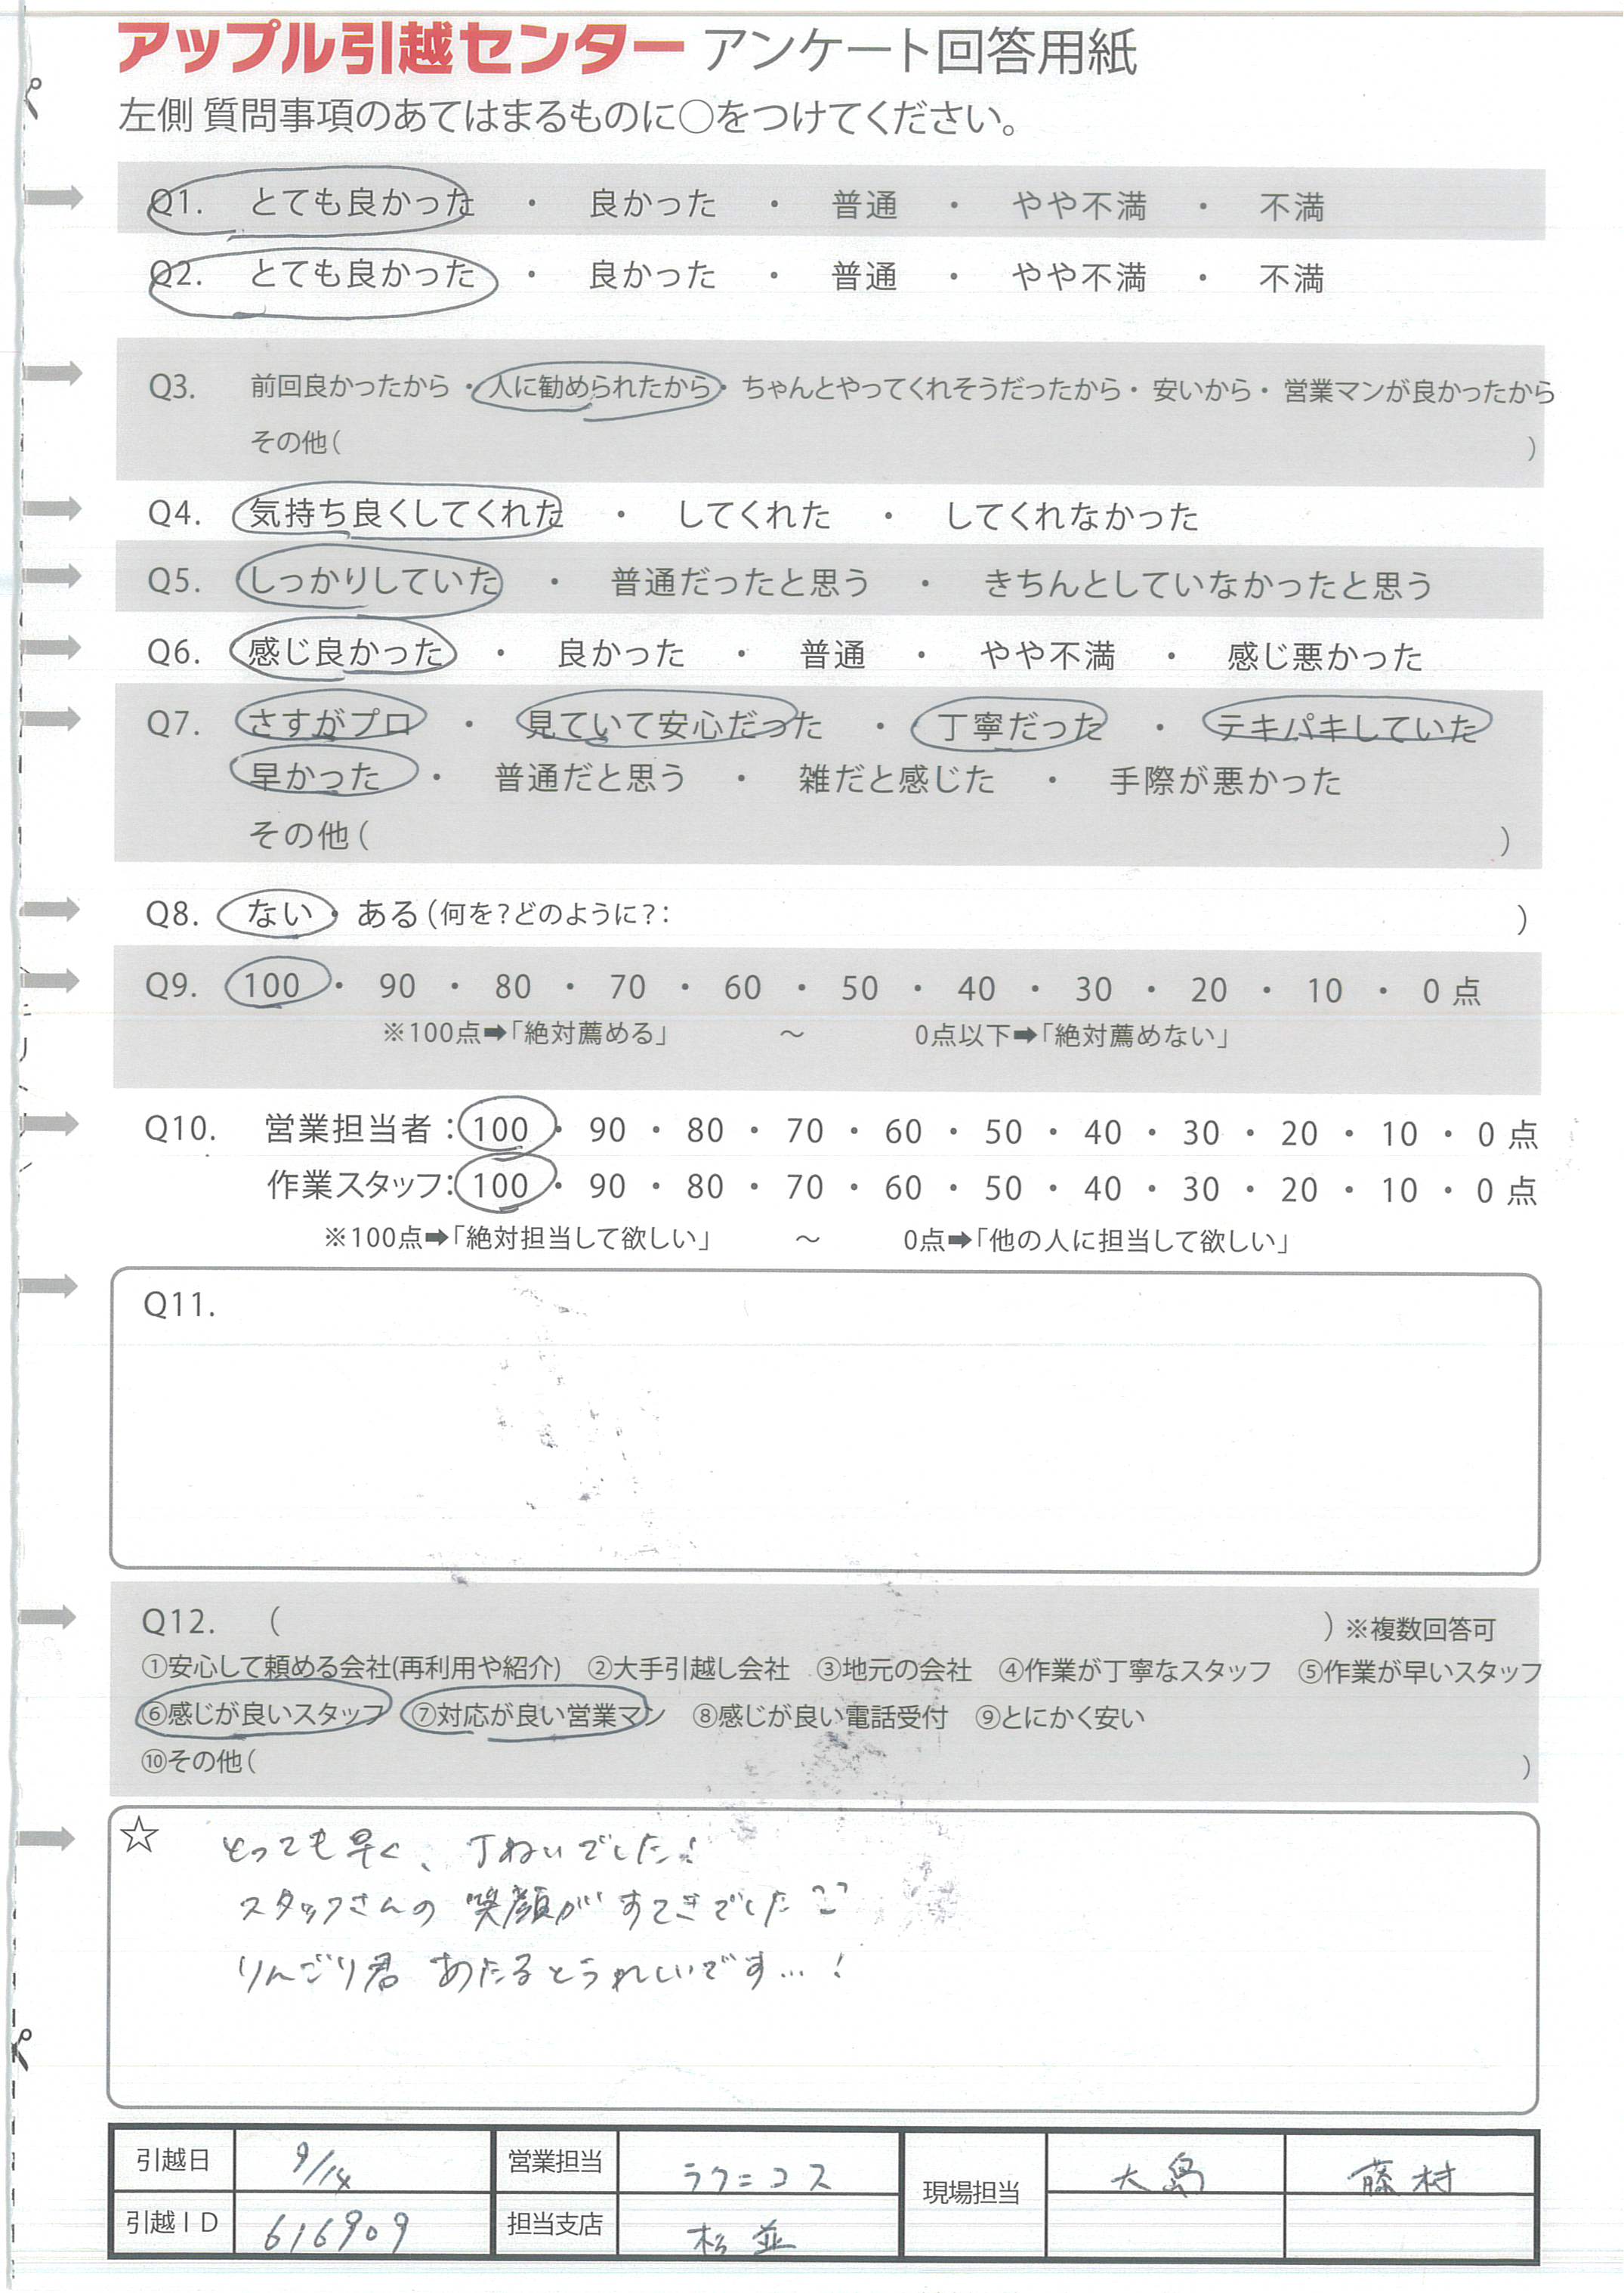 アップル引越センター アンケート回答用紙
左側 質問事項のあてはまるものに○をつけてください。
Q1. とても良かった ・ 良かった ・ 普通 ・ やや不満 ・ 不満
Q2. とても良かった ・ 良かった ・ 普通 ・ やや不満 ・ 不満
Q3. 前回良かったから・人に勧められたから・ちゃんとやってくれそうだったから・安いから・営業マンが良かったから
その他( )
Q4. 気持ち良くしてくれた ・ してくれた ・ してくれなかった
Q5. しっかりしていた ・ 普通だったと思う ・ きちんとしていなかったと思う
Q6. 感じ良かった ・ 良かった ・ 普通 ・ やや不満 ・ 感じ悪かった
Q7. さすがプロ ・ 見ていて安心だった ・ 丁寧だった ・ テキパキしていた
早かった ・ 普通だと思う ・ 雑だと感じた ・ 手際が悪かった
その他( )
Q8. ない・ ある(何を?どのように?: )
Q9. 100 ・ 90 ・ 80 ・ 70 ・ 60 ・ 50 ・ 40 ・ 30 ・ 20 ・ 10 ・ 0 点
※100点➡「絶対薦める」 ～ 0点以下➡「絶対薦めない」
Q10. 営業担当者:100・90・80・70・60・50・40・30・20・10・0 点
作業スタッフ:100・90・80・70・60・50・40・30・20・10・0 点
※100点➡「絶対担当して欲しい」 ～ 0点➡「他の人に担当して欲しい」
Q11.
Q12. ( )※複数回答可
①安心して頼める会社(再利用や紹介) ②大手引越し会社 ③地元の会社 ④作業が丁寧なスタッフ ⑤作業が早いスタッフ
⑥感じが良いスタッフ ⑦対応が良い営業マン ⑧感じが良い電話受付 ⑨とにかく安い
⑩その他( )
☆ とっても早く、丁ねいでした!
スタッフさんの笑顔がすてきでした
りんごり君 あたるとうれしいです…!
引越日 9/14 営業担当 ラクニコス 現場担当 大島 藤村
引越ID 616909 担当支店 松並